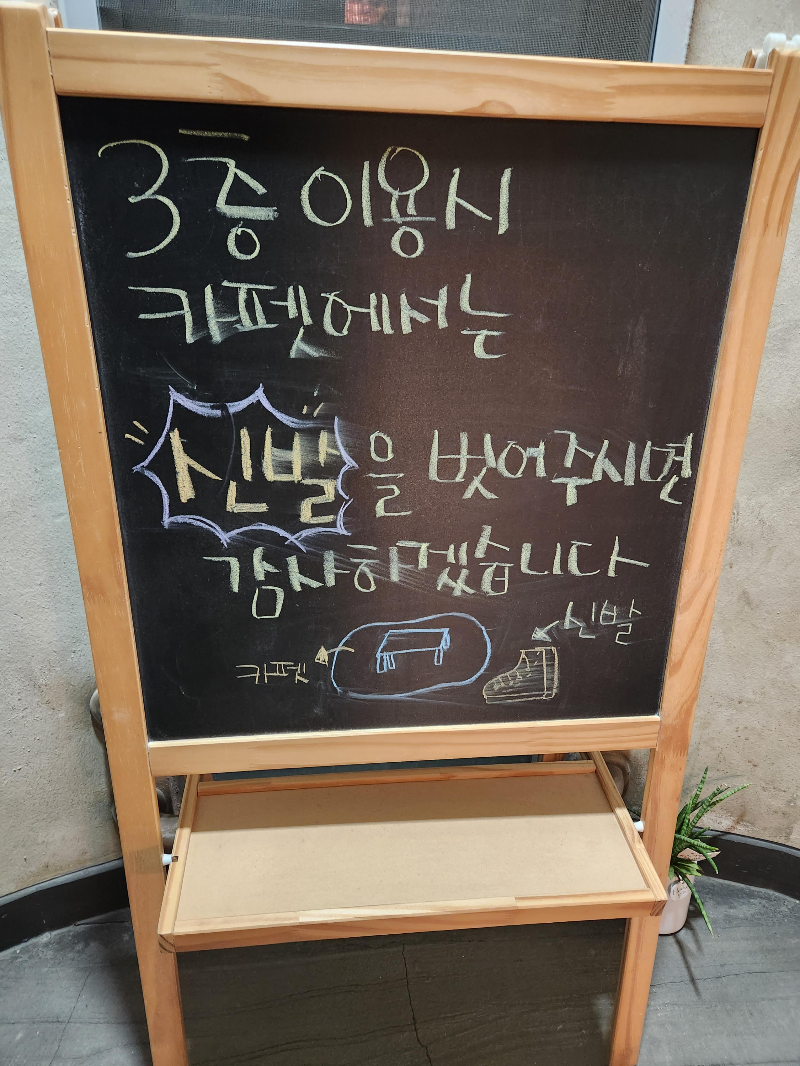 3층 이용시
카펫에서는
신발을 벗어주시면
감사하겠습니다
신발
카펫